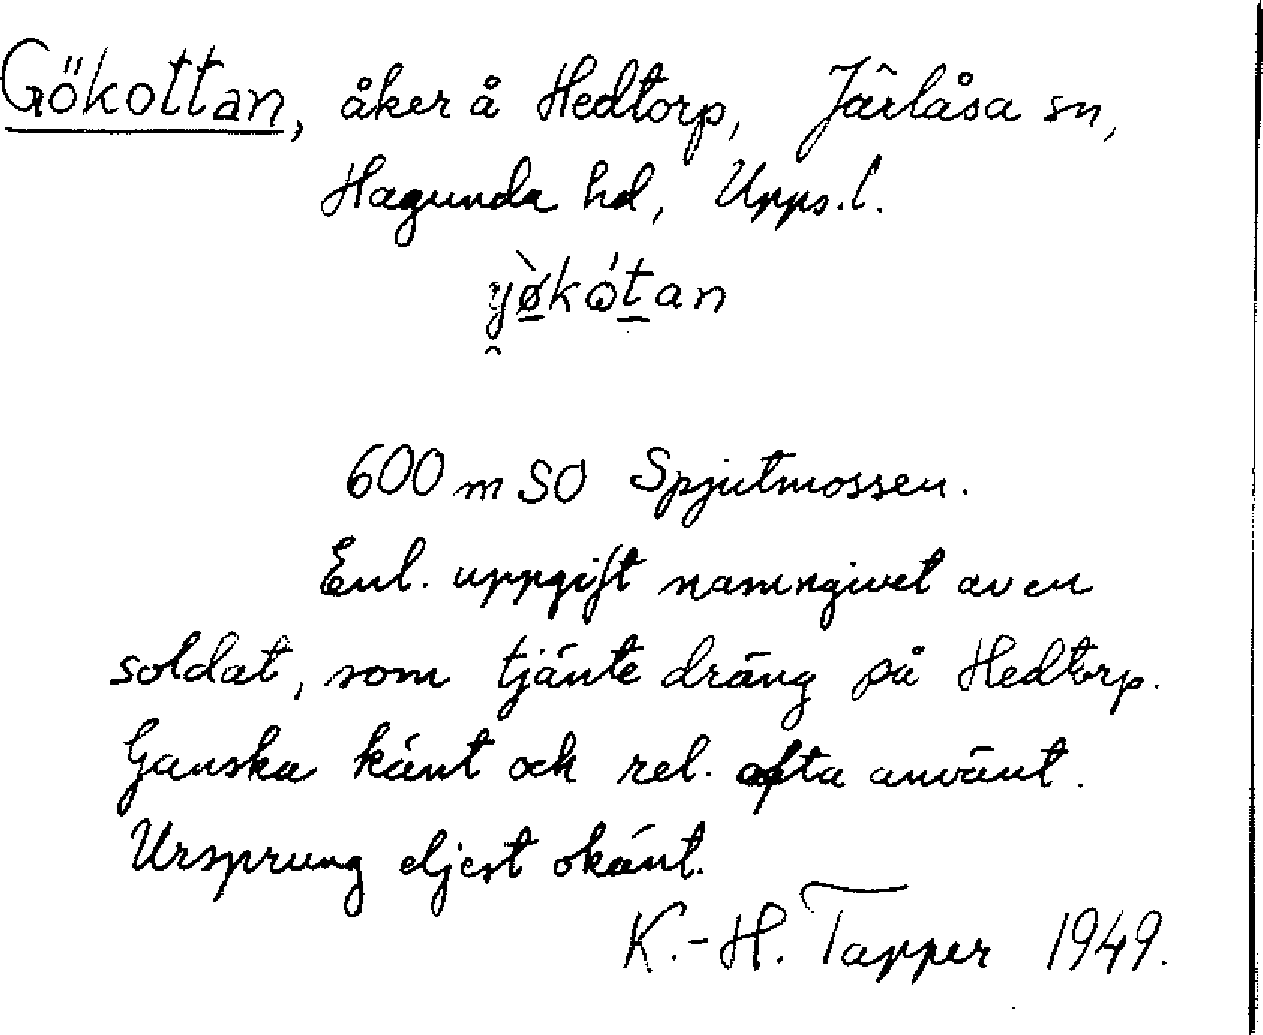 Gökottan, åker å Hedtorp, Järlåsa sn,
Hagunda hd, Upps.l.
600 m SO Spjutmossen.
Enl. uppgift namngivet av en
soldat, som tjänte dräng på Hedtorp.
Ganska känt och rel. ofta använt.
Ursprung eljest okänt.
K.-H. Tapper 1949.